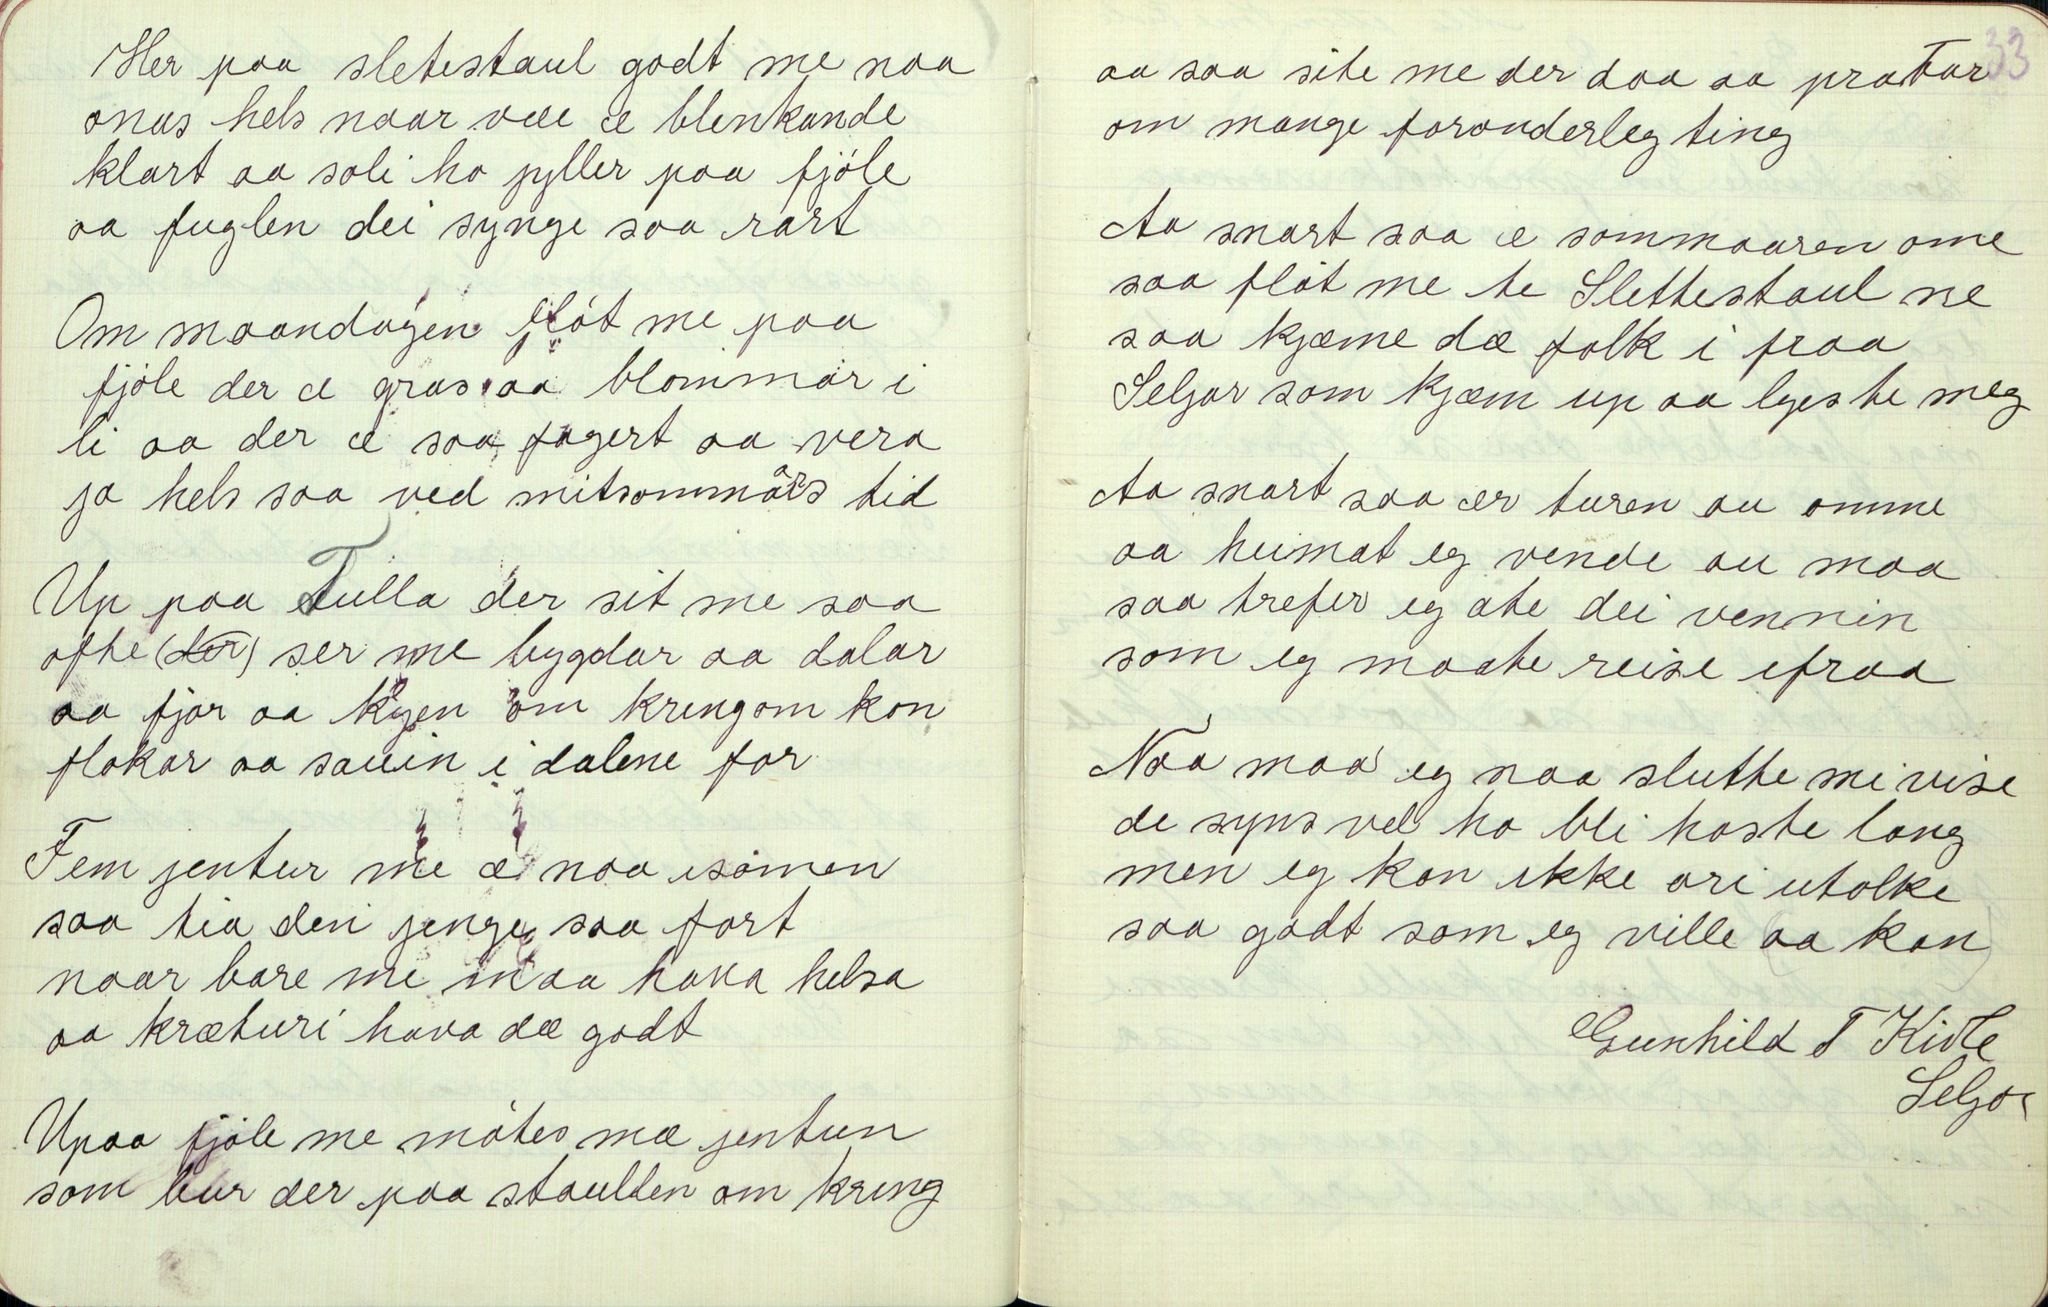 Her paa sletestaul godt me naa
onas hels naar vee æ blenkande
klart aa soli ho jyller paa fjöle
aa fuglen dei synge saa rart
Om maandagen flöt me paa
fjöle der æ gras aa blommar i
li aa der æ saa fagert aa vera
ja hels saa ved mitsommårs tid
Up paa Tulla der sit me saa
ofte (der) ser me bygdar aa dalar
aa fjor aa kyen om kringom kon
flokar aa sauin i dalene for
Fem jentur me æ naa isamen
saa tia den jenge saa fort
naar bare me maa hava helsa
aa kræturi hava dæ godt
Upaa fjöle me mötes mæ jentun
som bur der paa staulden om kring
33
aa saa site me der daa aa pratar
om mange foronderleg ting
Aa snart saa æ sommaaren ome
saa flöt me te Slettestaul ne
saa kjæme dæ folk i fraa
Seljor som kjæm up aa lyes te meg
Aa snart saa ær turen au omme
aa heimat eg vende au maa
saa trefer eg ate dei vennin
som eg maate reise ifraa
Naa maa eg naa slutte mi vise
de syns vel ho bli haste lang
men eg kan ikke ori utolke
saa godt som eg ville (aa kan)
Gunhild T Kivle
Seljor